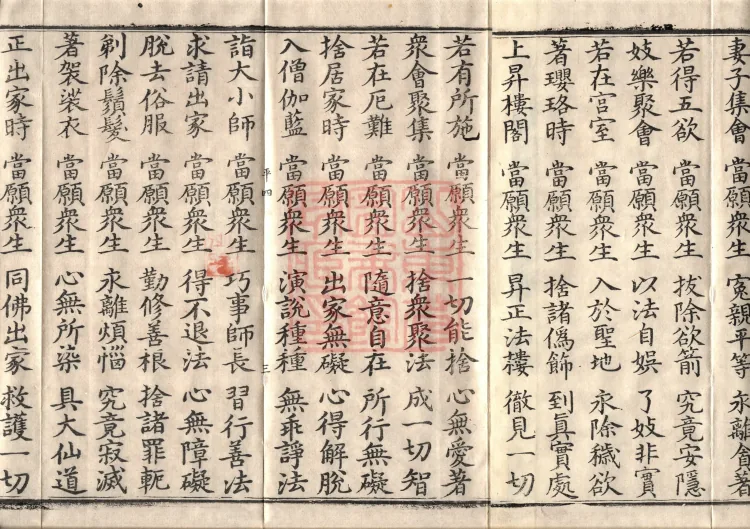 妻子集會 當願衆生 寃親平等 永離貪著
若得五欲 當願衆生 拔除欲箭 究竟安隱
妓樂聚會 當願衆生 以法自娛 了妓非實
若在宮室 當願衆生 入於聖地 永除穢欲
著瓔珞時 當願衆生 捨諸僞飾 到真實處
上昇樓閣 當願衆生 昇正法樓 徹見一切
若有所施 當願衆生 一切能捨 心無愛著
衆會聚集 當願衆生 捨衆聚法 成一切智
若在厄難 當願衆生 隨意自在 所行無礙
捨居家時 當願衆生 出家無礙 心得解脫
入僧伽藍 當願衆生 演說種種 無乖諍法
平四 三
詣大小師 當願衆生 巧事師長 習行善法
求請出家 當願衆生 得不退法 心無障礙
脫去俗服 當願衆生 勤修善根 捨諸罪軛
剃除鬚髮 當願衆生 永離煩惱 究竟寂滅
著袈裟衣 當願衆生 心無所染 具大仙道
正出家時 當願衆生 同佛出家 救護一切